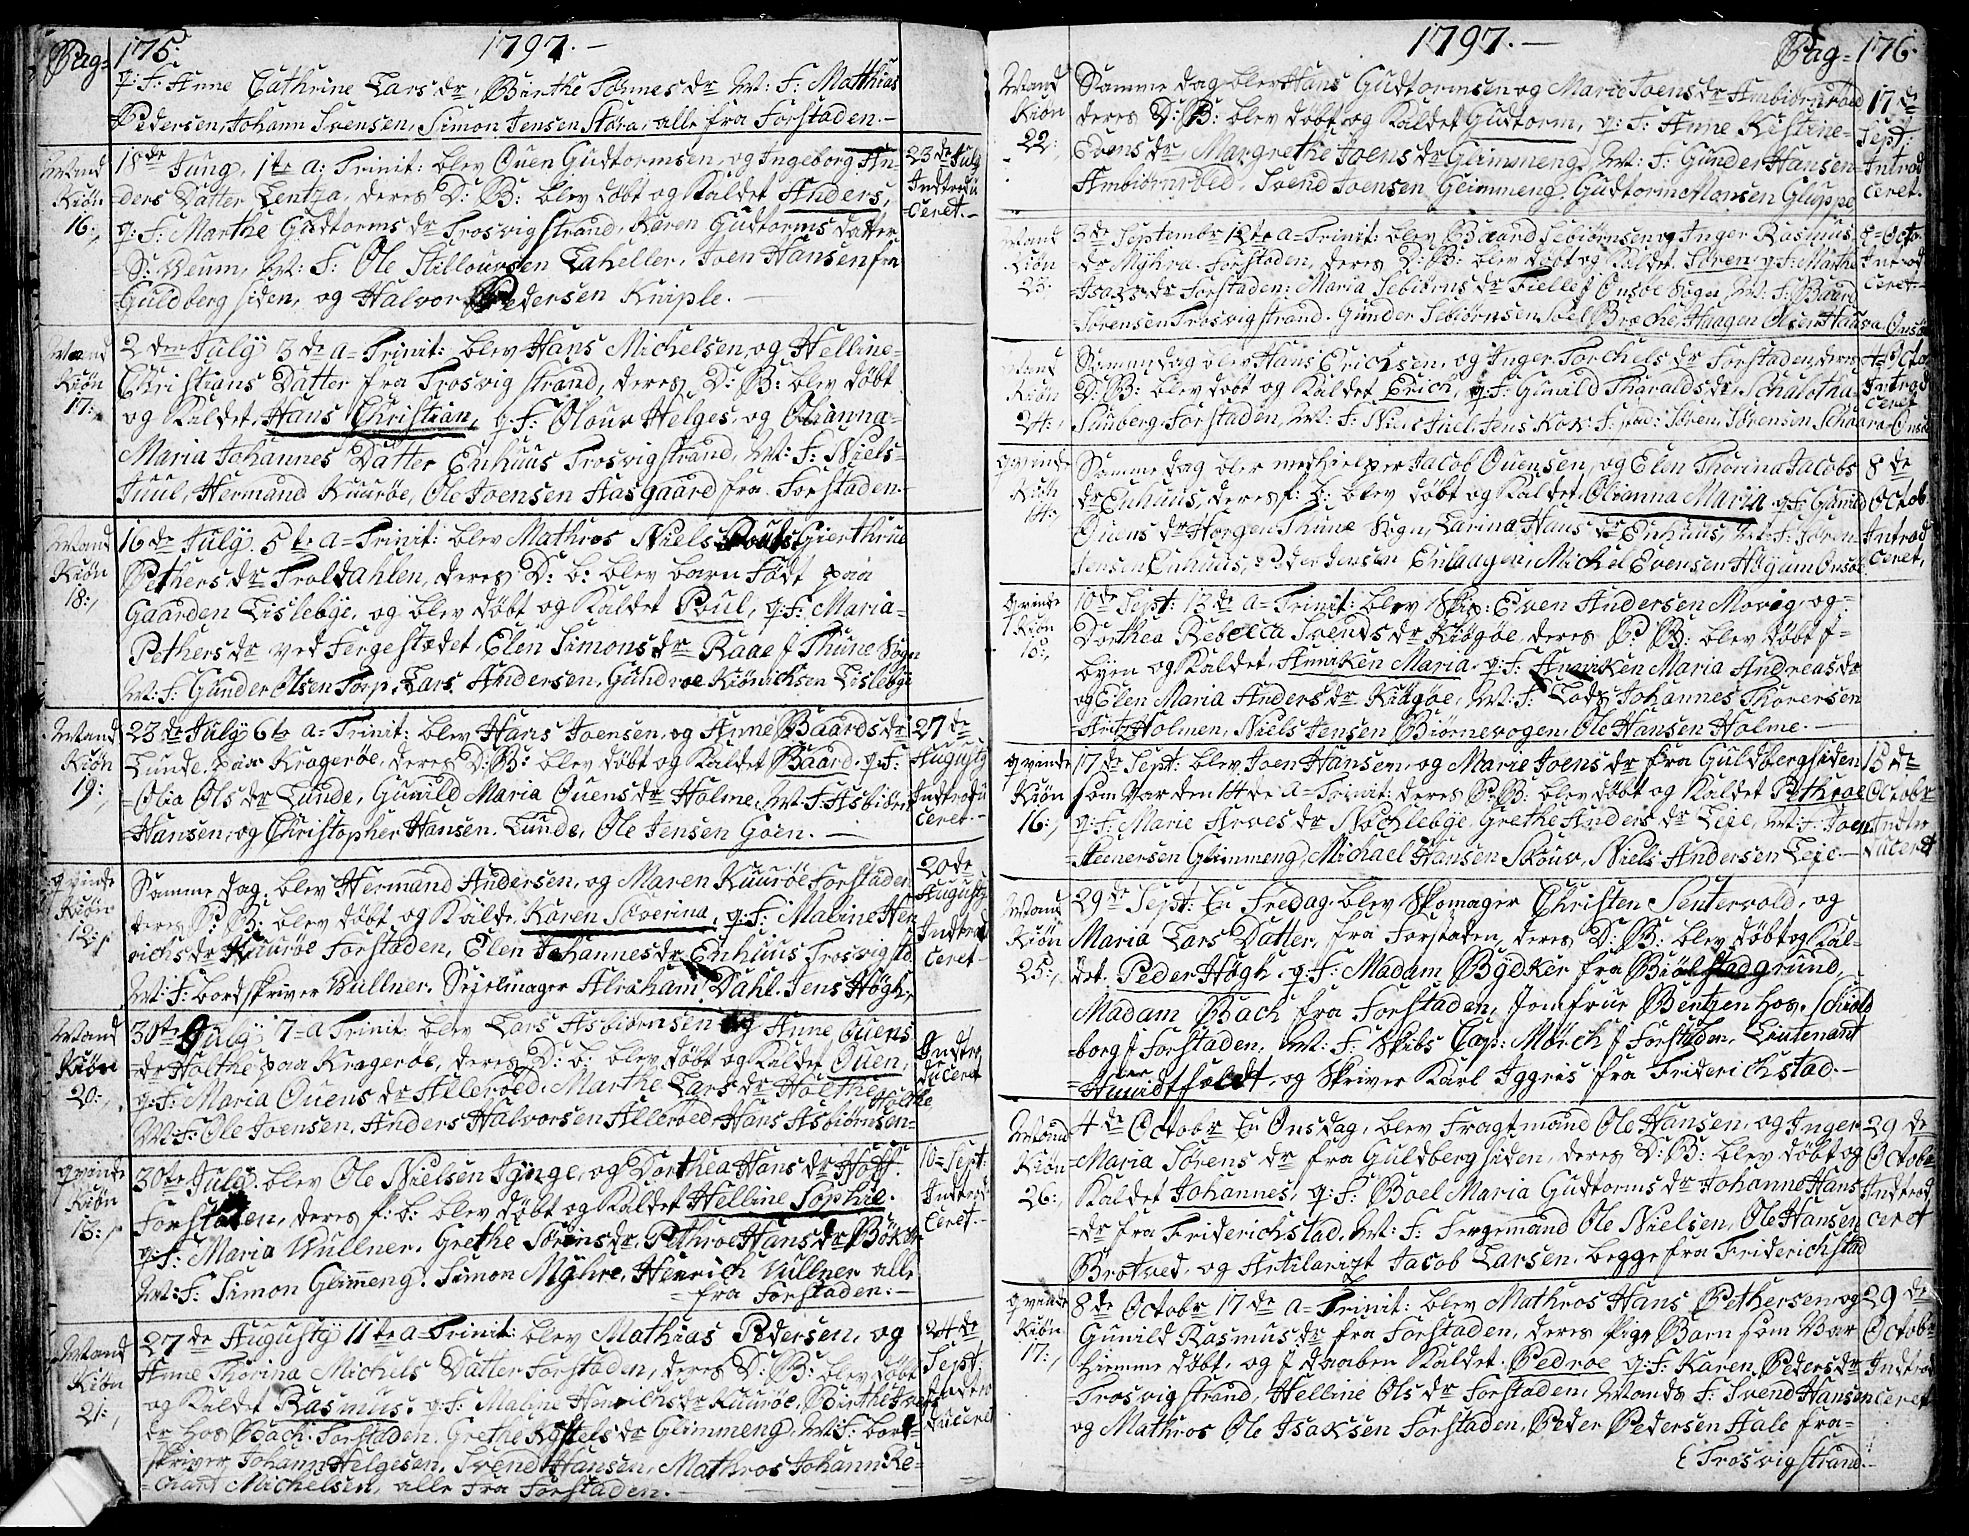 Pag= 175. 1797.—
q: F: Anne Cathrine Lars dr, Birthe Tønnes dr M: F: Matthias
Pedersen, Johann Svensen, Simon Jensen Støra, alle fra Forstaden.—
Mand Kiøn 16:,
18de Juny, 1te a: Trinit: blev Ouen Gudtormsen, og Ingeborg An-
ders Datter Lentza, deres D: B: blev døbt og Kaldet Anders,
q: F: Marthe Gudtorms dr Trosvigstrand, Karen Gudtorms datter
S: Veum, M: F: Ole Stillouvsen Laheller, Joen Hansen fra
Guldbergsiden, og Halvor Pedersen Kniple.—
23de July Indtrodu=ceret.—
Mand Kiøn 17:,
2den July 3de a=Trinit: blev Hans Michelsen, og Helline=
Christians Datter fra Trosvigstrand, deres D: B: blev døbt
og Kaldet, Hans Christian, q: F: Olouv Helges, og Olianna=
Maria Johannes Datter Enhuus Trosvigstrand, M: F: Niels=
Juul, Hermand Kuurøe, Ole Joensen Aasgaard fra Forstaden.—
Mand Kiøn 18:,
16de July 5te a=Trinit: blev Mathros Niels Gierthrue
Pethers dr Troldahlen, deres D: b: blev barn Født paa
Gaarden Lislebye, og blev døbt og Kaldet Poul, q: F: Maria=
Pethers dr ved Fergestædet, Elen Simons dr Raae f Thune Sogn
M: F: Gunder Olsen Torp, Lars Andersen, Gundroe Kiønichsen Lislebye
Mand Kiøn 19:,
23de July 6te a=Trinit: blev Hans Joensen, og Anne Baards dr
Lunde, paa Kragerøe, deres D: B: blev døbt og Kaldet Baard, q: F:
Olia Ols dr Lunde, Gunild Maria Ouens dr Holme, M: F: Asbiørn
Hansen, og Christopher Hansen Lunde, Ole Jensen Goen.—
27de Augusty Indtrodu ceret.—
qvinde Kiøn 12:,
Samme dag, blev Hermand Andersen, og Maren Kuurøe Forstaden
deres P: B: blev døbt og Kaldt. Karen Søverina, q: F: Maline Hen
richs dr Kuurøe Forstaden, Elen Johannes dr Enhuus Trosvigstd
M: F: bordskriver Wullner, Sejelmager Abraham Dahl, Jens Høgh,
20de Augusty Indtrod ceret—
Mand Kiøn 20:,
30te July 7=a Trinit: blev Lars Asbiørnsen og Anne Ouens
dr Holthe paa Kragerøe, deres D: b: blev døbt og Kaldet Ouen,
q: F: Maria Ouens dr Allerød, Marthe Lars dr Holthe
M: F: Ole Joensen, Anders Halvorsen Allerøed, Hans Asbiørnsen= Holthe
Indtro duceret
qvinde Kiøn 13:,
30te July, blev Ole Nielsen Iginge, og Dorthea Hans dr Hoff:
Forstaden, deres f: b: blev døbt og Kaldet Helline Sophie.
q: f: Maria Wullner, Grethe Sørens dr, Pethroe Hans dr Bøk
M: F: Simon Glimmeng, Simon Myhre, Henrich Wullner alle
=fra Forstaden:—
10=Sept: Indtrod ceret.—
Mand Kiøn 21:,
27de Augusty 11te a=Trinit: blev Mathias Pedersen, og
Anne Thorina Michels Datter Forstaden, deres D: B: blev døbt
og Kaldet Rasmus. q: F: Maline Henrichs dr Kuurøe, Birthe
dr hos Bach: Forstaden, Grethe dr Glimmeng, M: F: bord-
skriver Johann Helgesen, Svend Hansen, Mathros Johann Re=
Michelsen, alle Fra Forstaden.—
24de Sept: Indtro duceret
1797.— Pag= 176.
Mand Kiøn 22:,
Samme dag blev Hans Gudtormsen og Marie Joens dr Ambiørnrød
deres D: B: blev døbt og Kaldet Gudtorm, q: F: Anne Kistine=
Evens dr, Margrethe Joens dr Glimmeng, M: F: Gunder Hansen
Ambiørnrød, Svend Joensen Glimmeng, Gudtorm Monsen Gluppe
17de Sept: Introd ceret.
Mand Kiøn 23:
3de Septembr 12te a=Trinit: blev Baard Sebiørnsen og Inger Rasmus
dr Myhra, Forstaden, deres D: B: blev døbt og Kaldet Søren, q: F: Marthe
Isaks dr Forstaden, Maria Sebiørns dr Fielle f Onsøe Sogn, M: F: Baard
Sørensen Trosvigstrand, Gunder Sebiørnsen Broche, Haagen Olsen
Octo Introd ceret—
Mand Kiøn 24:,
Samme dag blev Hans Erichsen, og Inger Torchels dr Forstaden, deres
D: B: blev døbt og Kaldet Erich, q: F: Gunild Tharalds dr Schalotha
Sunberg Forstaden, M: F: Niels Juel, Jens Kok: F:stad: Søren Sørensen
Octo Introd ceret
qvinde Kiøn 14:,
Samme dag blev Jacob Ouensen, og Elen Thorina Jacobs
dr Enhuus, deres f: b: blev døbt og Kaldet, Olianna Maria, q: F: Gunild
Ouens dr Horgen Thune Sogn, Larina Hans dr Enhuus, M: F: Søren
Jensen Enhuus, Peder Jensen Michel Evensen Onsøe
8de Octob: Introd ceret,
qvinde Kiøn 15:,
10de Sept: 13de a=Trinit: blev Skip: Even Andersen Movig, og=
Dorthea Rebecca Svends dr Kiøgøe, deres P: B: blev døbt f=
byen og Kaldet, Anniken Maria. q: F: Anniken Maria Andreas dr
og Elen Maria Anders dr Kiøgøe, M: F: Lods Johannes Thorersen
Holmen, Niels Jensen Biørnevogen, Ole Hansen Holme.—
qvinde Kiøn 16:,
17de Sept: blev Joen Hansen, og Marie Joens dr fra Guldbergsiden
som Var den 14de a=Trinit: deres P: B: blev døbt og Kaldet Pethroe
q: F: Marie Arves dr Nochlebye, Grethe Anders dr Leje, M: F: Joen
Steenersen Glimmeng, Michael Hansen Skouv, Niels Andersen Leje—
15de Octobr Indtro duceret
Mand Kiøn 25:,
29de Sept: En Fredag, blev Skomager Christen Sentervold, og
Maria Lars Datter, fra Forstaden, deres D: B: blev døbt og Kal-
det. Peder Høgh. q: F: Madam Bydker fra Biølstadgrund,
Madam Bach fra Forstaden, Jomfrue Bentzen hos. Schiold
=borg f Forstaden, M: F: Skibs Cap: Mørch f Forstaden, Lieutenant
og Skriver Karl Iggris fra Friderichstad.—
Mand Kiøn 26:,
4de Octobr En Onsdag, blev Fragtmand Ole Hansen, og Inger
=Maria Sørens dr fra Guldbergsiden, deres D: B: blev døbt og
Kaldet Johannes, q: F: Boel Maria Gudtorms dr Johanne Hans
=dr fra Friderichstad, M: F: Fergemand Ole Nielsen, Ole Hansen
Brotved, og Artilarist Jacob Larsen, begge fra Friderichstad
29de Octobr Indtrod ceret
qvinde Kiøn 17:,
8de Octobr 17de a=Trinit: blev Mathros Hans Pethersen, og
Gunild Rasmus dr fra Forstaden, deres Pige Barn som Var
hiemme døbt, og f daaben Kaldet. Pedroe q: F: Karen Peders dr
=Trosvigstrand, Helline Ols dr Forstaden, Mands F: Svend Hansen
og Mathros Ole Isaksen Forstaden, Peder Pedersen Hale fra=
Trosvigstrand.—
29de Octobr Indtrod ceret